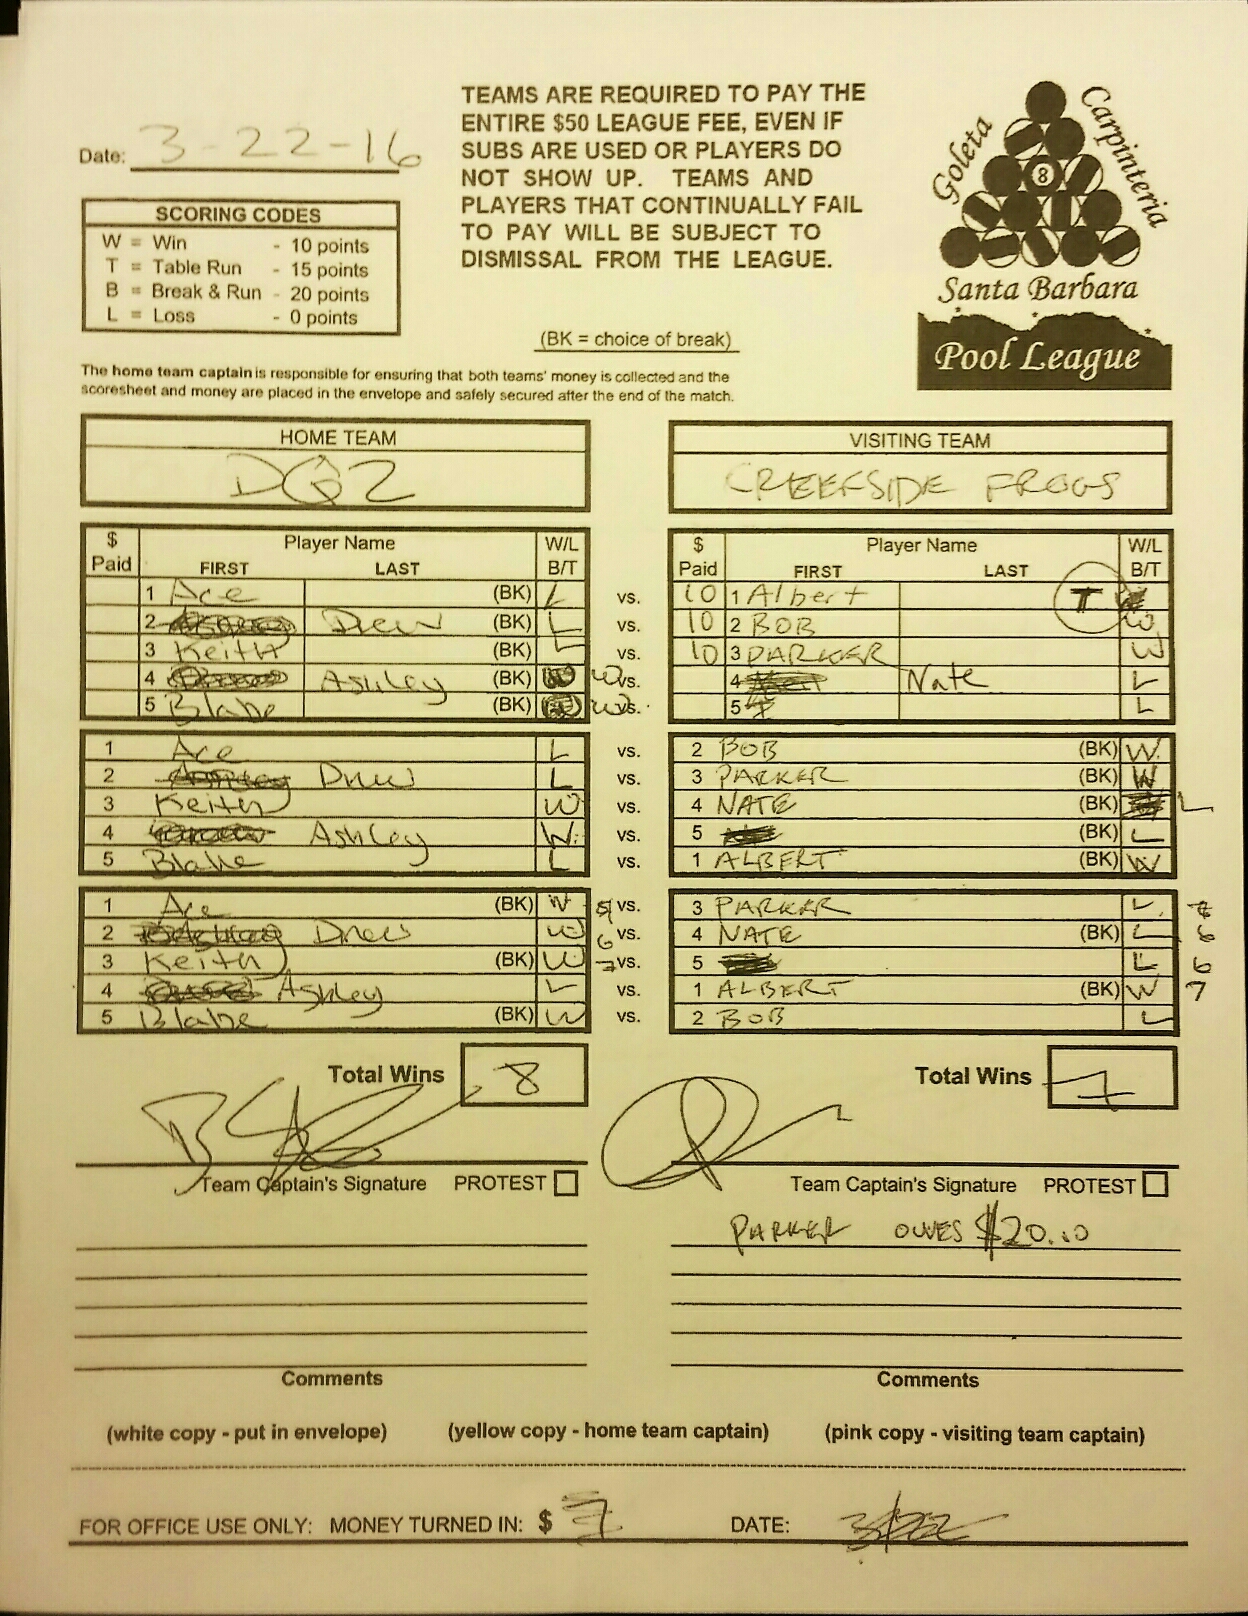 TEAMS ARE REQUIRED TO PAY THE
ENTIRE $50 LEAGUE FEE, EVEN IF
SUBS ARE USED OR PLAYERS DO
NOT SHOW UP. TEAMS AND
PLAYERS THAT CONTINUALLY FAIL
TO PAY WILL BE SUBJECT TO
DISMISSAL FROM THE LEAGUE.
Goleta
Carpinteria
8
Santa Barbara
Pool League
Date: 3-22-16
SCORING CODES
W = Win - 10 points
T = Table Run - 15 points
B = Break & Run - 20 points
L = Loss - 0 points
(BK = choice of break)
The home team captain is responsible for ensuring that both teams' money is collected and the
scoresheet and money are placed in the envelope and safely secured after the end of the match.
HOME TEAM VISITING TEAM
DQ2 CREEKSIDE FROGS
$ Paid Player Name FIRST LAST W/L B/T $ Paid Player Name FIRST LAST W/L B/T
1 Ace (BK) L vs. 10 1 Albert T
2 Drew (BK) L vs. 10 2 BOB W
3 Keith (BK) L vs. 10 3 PARKER W
4 Ashley (BK) W vs. 4 Nate L
5 Blake (BK) W vs. 5 L
1 Ace L vs. 2 BOB (BK) W
2 Drew L vs. 3 PARKER (BK) W
3 Keith W vs. 4 NATE (BK) L
4 Ashley W vs. 5 (BK) L
5 Blake L vs. 1 ALBERT (BK) W
1 Ace (BK) W 5 vs. 3 PARKER L
2 Drew W 6 vs. 4 NATE (BK) L
3 Keith (BK) W 7 vs. 5 L 6
4 Ashley L vs. 1 ALBERT (BK) W 7
5 Blake (BK) W vs. 2 BOB L
Total Wins 8 Total Wins 7
Team Captain's Signature PROTEST Team Captain's Signature PROTEST
PARKER OWES $20.00
Comments Comments
(white copy - put in envelope) (yellow copy - home team captain) (pink copy - visiting team captain)
FOR OFFICE USE ONLY: MONEY TURNED IN: $ DATE: 3/22